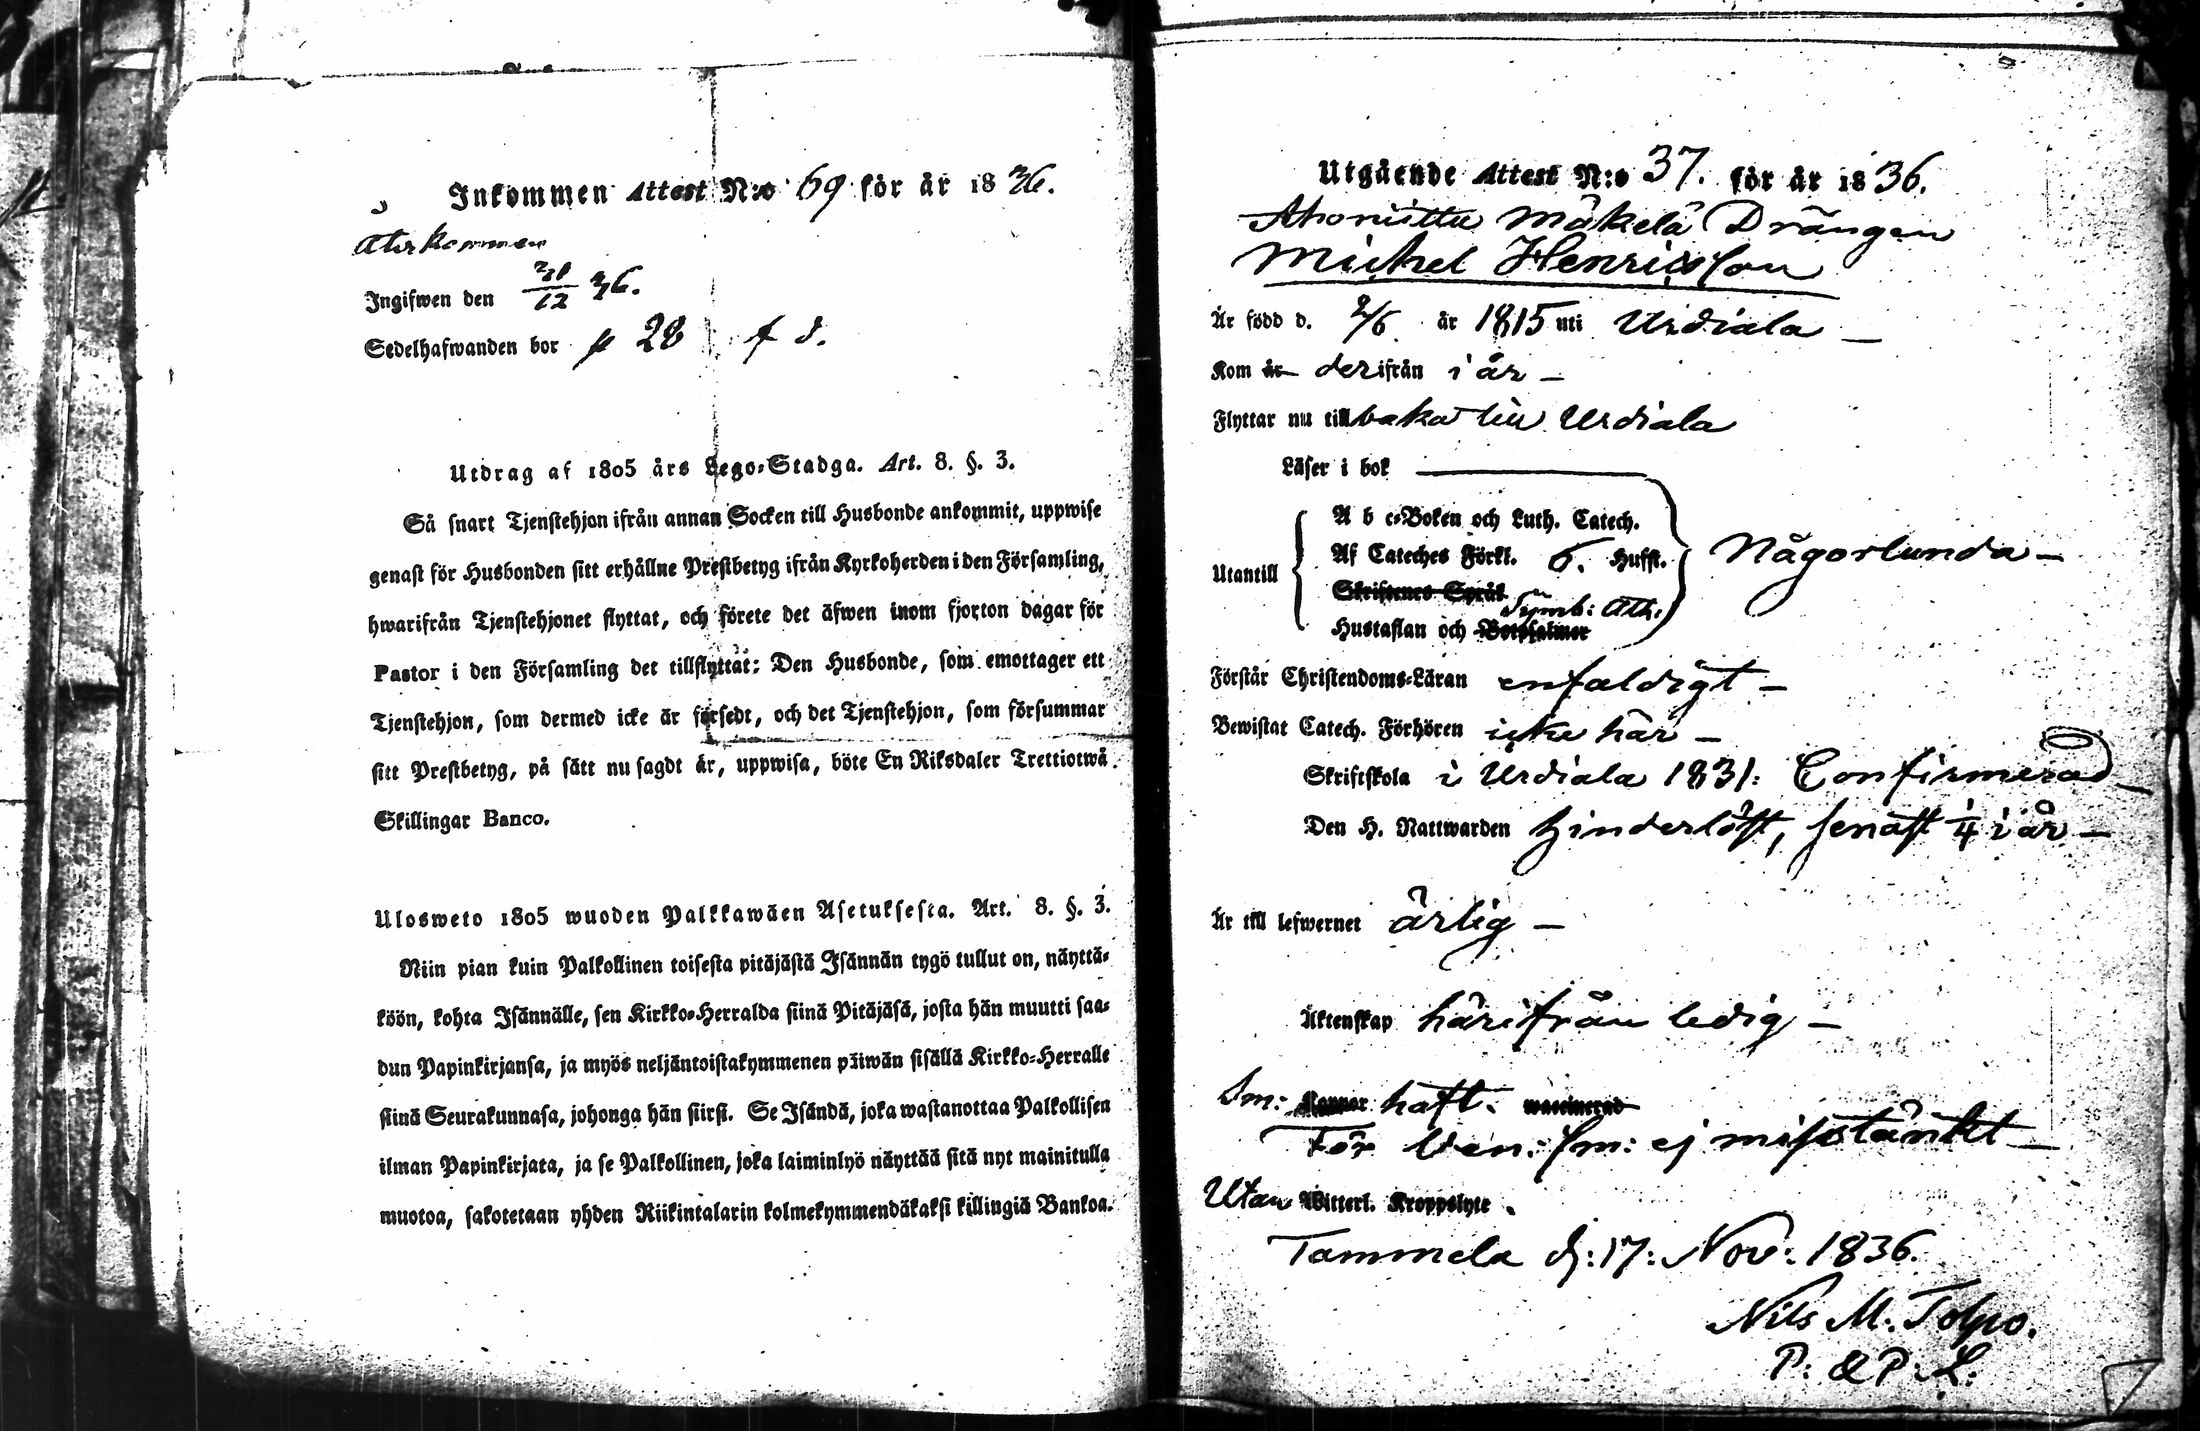 Inkommen Attest N:o 69 för år 1836.
Återkommen
Ingifwen den 21/12 36.
Sedelhafwanden bor p 28 f d.
Utdrag af 1805 års Lego-Stadga. Art. 8. §. 3.
Så snart Tjenstehjon ifrån annan Socken till Husbonde ankommit, uppwise
genast för Husbonden sitt erhållne Prestbetyg ifrån Kyrkoherden i den Församling,
hwarifrån Tjenstehjonet flyttat, och förete det äfwen inom fjorton dagar för
Pastor i den Församling det tillflyttat: Den Husbonde, som emottager ett
Tjenstehjon, som dermed icke är försedt, och det Tjenstehjon, som försummar
sitt Prestbetyg, på sätt nu sagdt är, uppwisa, böte En Riksdaler Trettiotwå
Skillingar Banco.
Ulosweto 1805 wuoden Palkkawäen Asetuksesta. Art. 8. §. 3.
Niin pian kuin Palkollinen toisesta pitäjästä Isännän tygö tullut on, näyttä-
köön, kohta Isännälle, sen Kirkko-Herralda siinä Pitäjäsä, josta hän muutti saa-
dun Papinkirjansa, ja myös neljäntoistakymmenen päiwän sisällä Kirkko-Herralle
siinä Seurakunnasa, johonga hän siirsi. Se Isändä, joka wastanottaa Palkollisen
ilman Papinkirjata, ja se Palkollinen, joka laiminlyö näyttää sitä nyt mainitulla
muotoa, sakotetaan yhden Riikintalarin kolmekymmendäkaksi killingiä Bankoa.
Utgående Attest N:o 37. för år 1836.
Ahonistu Mäkelä Drängen
Michel Henricsson
Är född d. 2/6 år 1815 uti Urdiala —
Kom år derifrån i år —
Flyttar nu tillbaka till Urdiala
Läser i bok
A b c-Boken och Luth. Catech.
Af Cateches Förkl. 6. Hufst. Någorlunda —
Utantill
Skriftenes Språk
Symb: Ath:
Hustaflan och Botpsalmer
Förstår Christendoms-Läran enfaldigt —
Bewistat Catech. Förhören icke här —
Skriftskola i Urdiala 1831. Confirmerad
Den H. Nattwarden hinderlöst, senast 1/4 i år —
Är till lefwernet ärlig —
Äktenskap härifrån ledig —
Sm: Koppor haft. waccinerad
För Ven: sm: ej misstänkt —
Utan Witterl. Kroppslyte.
Tammela d: 17: Nov: 1836.
Nils M. Tolpo.
P: & P: L: